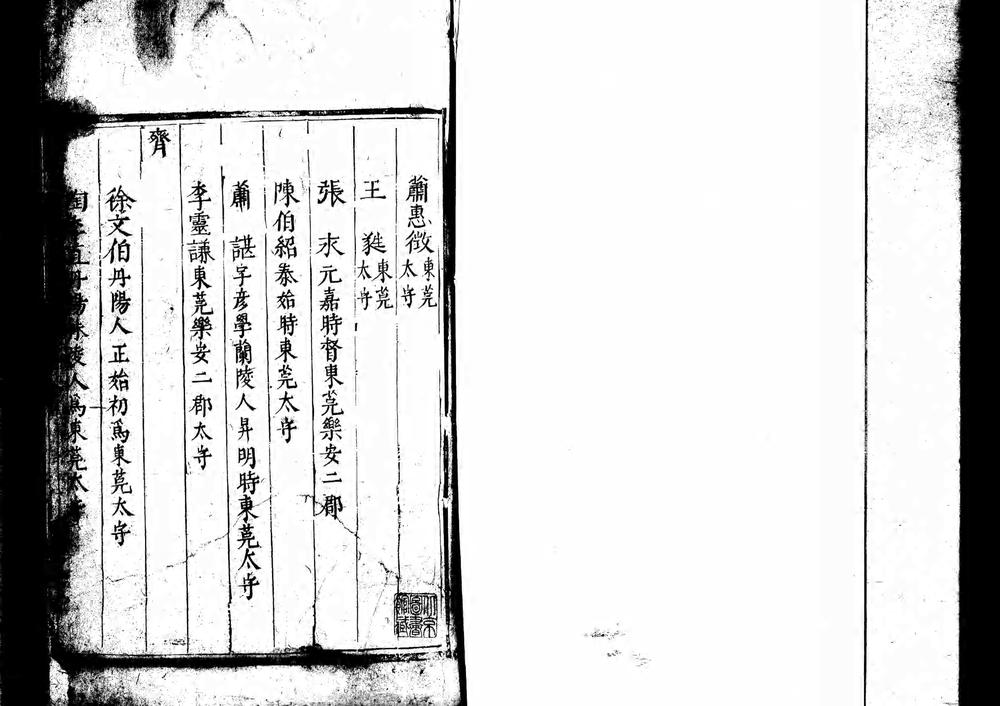 蕭惠徴東莞太守
王㲋東莞太守
張永元嘉時督東莞樂安二郡
陳伯紹泰始時東莞太守
蕭諶字彦學蘭陵人昇明時東莞太守
李靈謙東莞樂安二郡太守
齊
徐文伯丹陽人正始初爲東莞太守
直丹陽秣陵人爲東莞太守